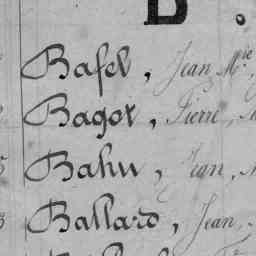 B.
Bafel, Jean Mie
Bagot, Pierre,
Bahu, Jean,
Ballard, Jean,